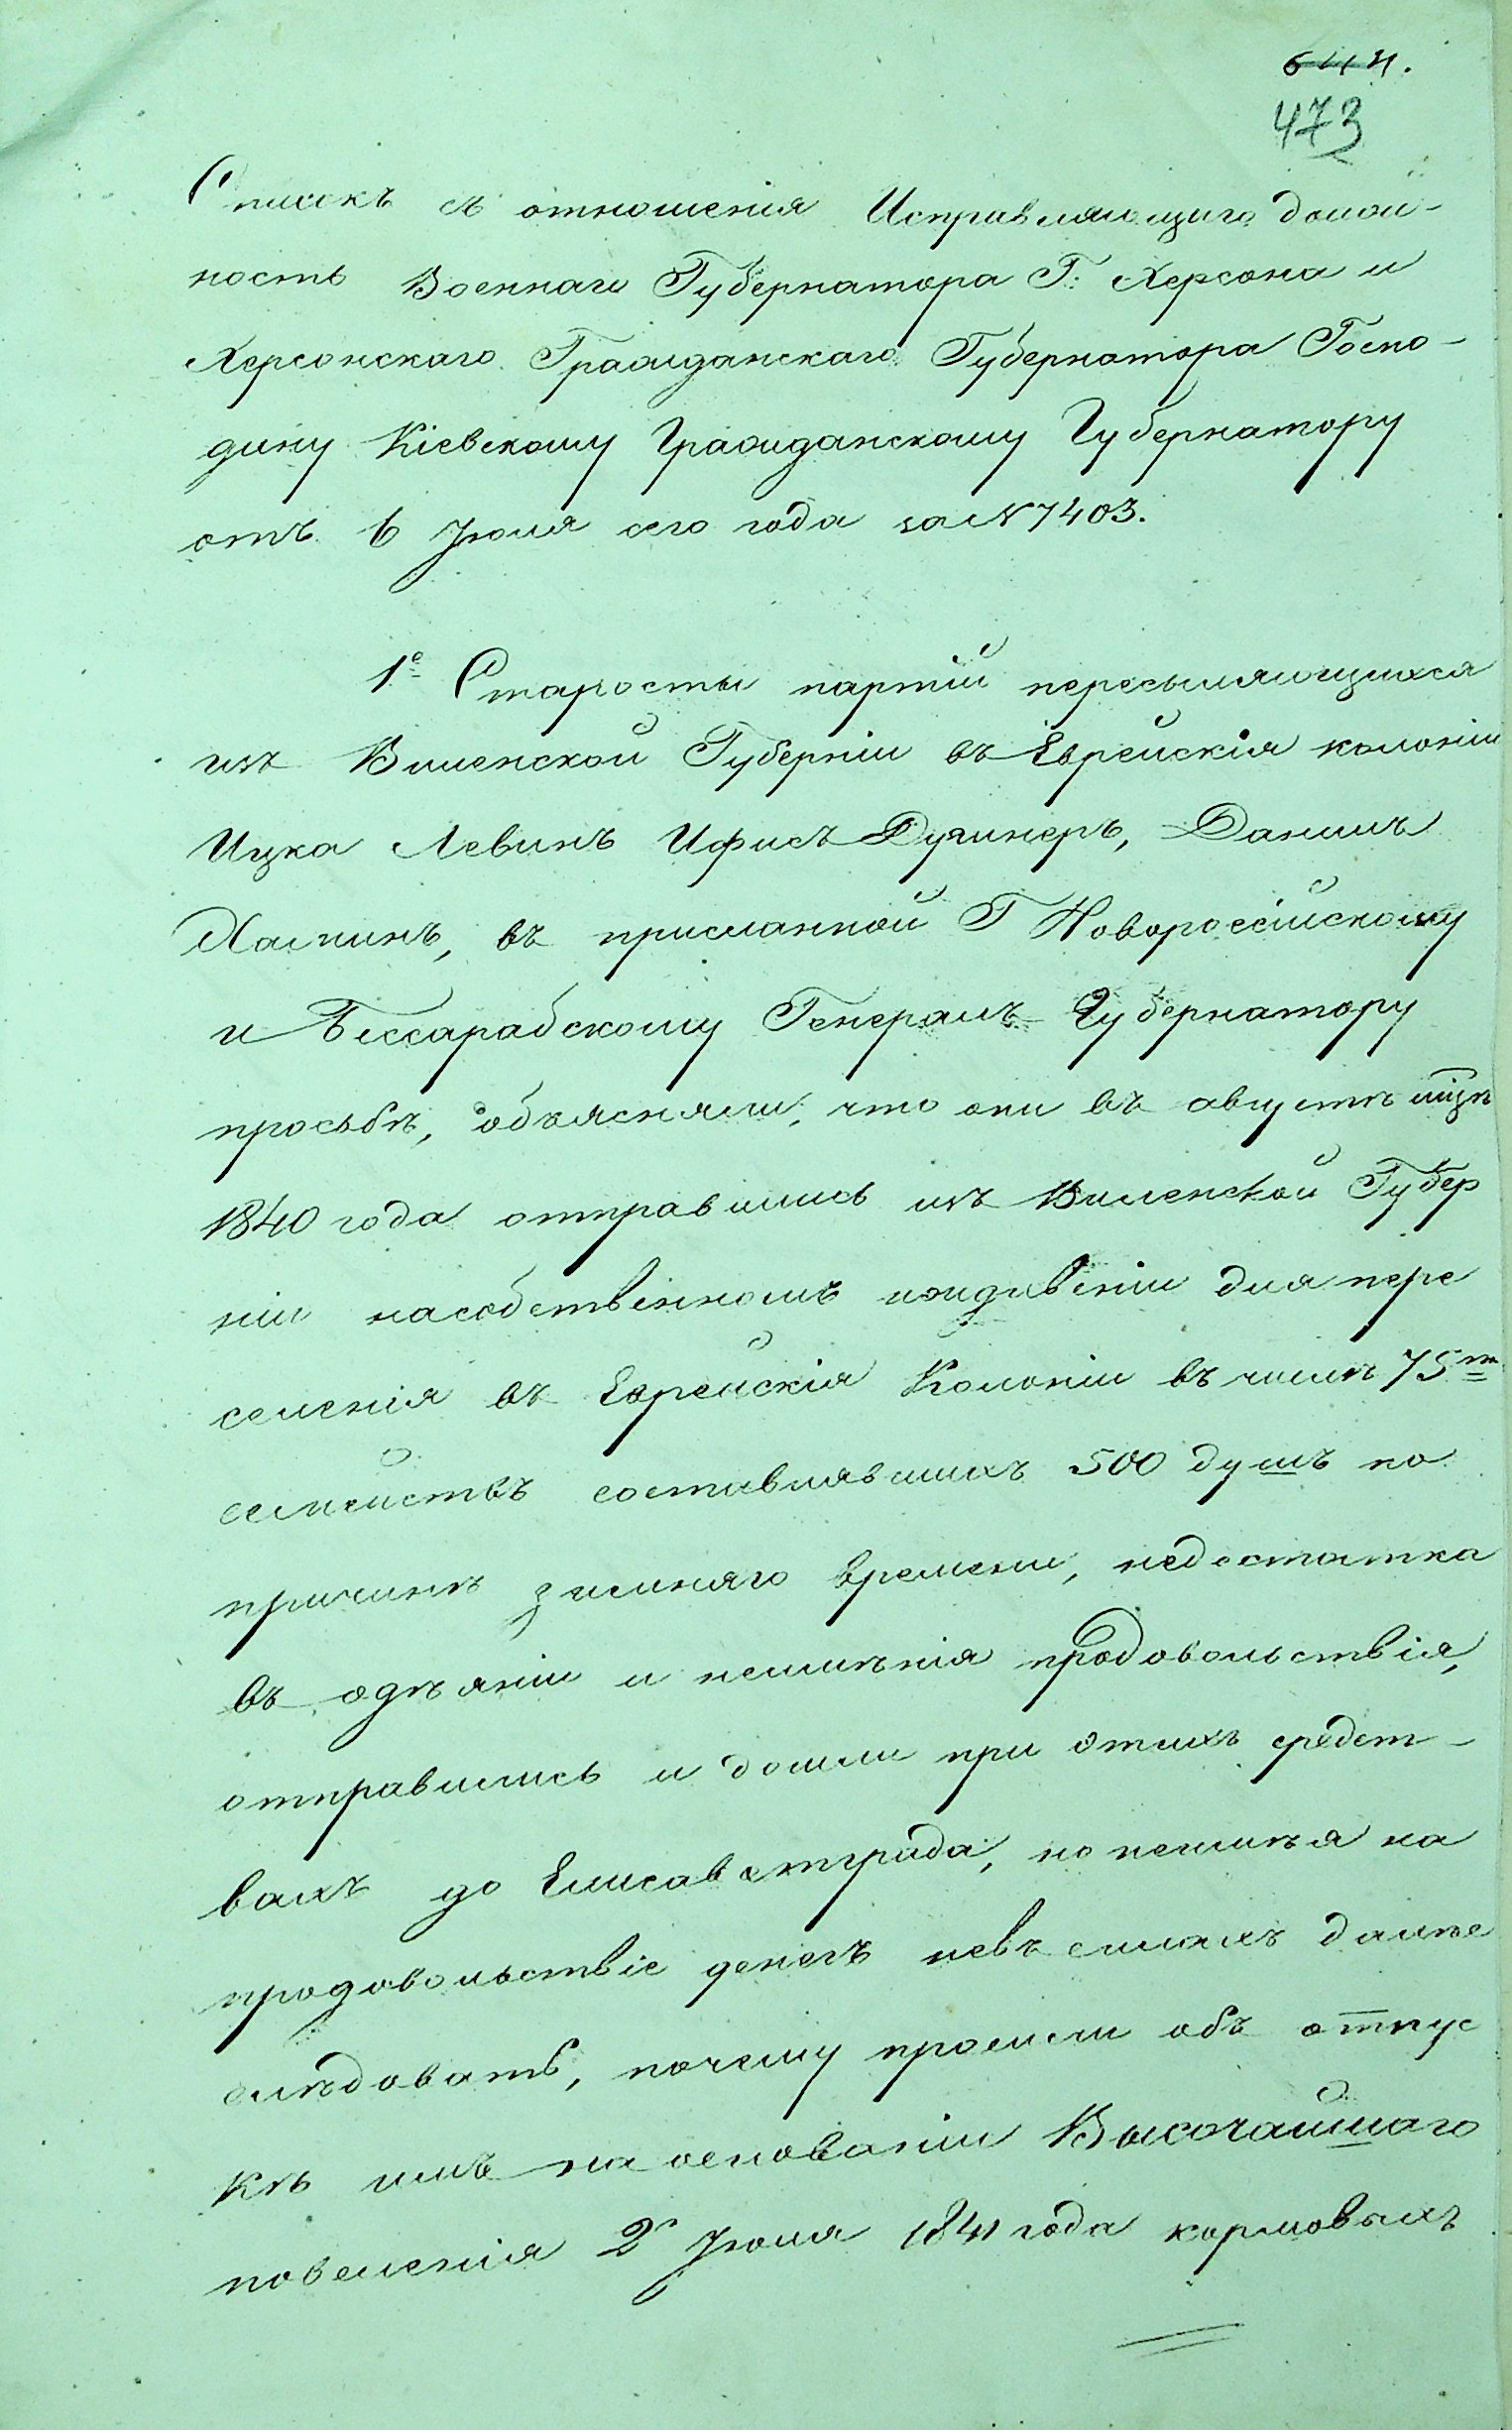 644.
473
Списокъ съ отношенія Исправляющаго долж-
ность Военнаго Губернатора Г: Херсона и
Херсонскаго Гражданскаго Губернатора Госпо-
дину Кіевскому Гражданскому Губернатору
отъ 6 Іюля сего года за № 7403.
1е Старосты партій пересыляющихся
изъ Виленской Губерніи въ Еврейскія колоніи
Ицка Левинъ Ифисъ, Данилъ
въ присланной Г Новороссійскому
и Бессарабскому Генералъ Губернатору
просьбѣ, объясняли, что они въ августѣ мцѣ
1840 года отправились изъ Виленской Губер
ніи на собственномъ иждивеніи для пере
селенія въ Еврейскія Колоніи въ числѣ 75ти
семействъ составлявшихъ 500 душъ по
причинѣ зимняго времени, недостатка
въ одѣяніи и неимѣнія продовольствія,
отправились и дошли при этихъ средст-
вахъ до Елисаветграда, но неимѣя на
продовольствіе денегъ невъ силахъ далѣе
слѣдовать, почему просили объ отпус
кѣ имъ на основаніи Высочайшаго
повеленія 2 Іюля 1841 года кормовыхъ